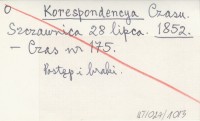 0 Korespondencya Czasu.
Szczawnica 28 lipca. 1852.
– Czas nr 175.
Postęp i braki.